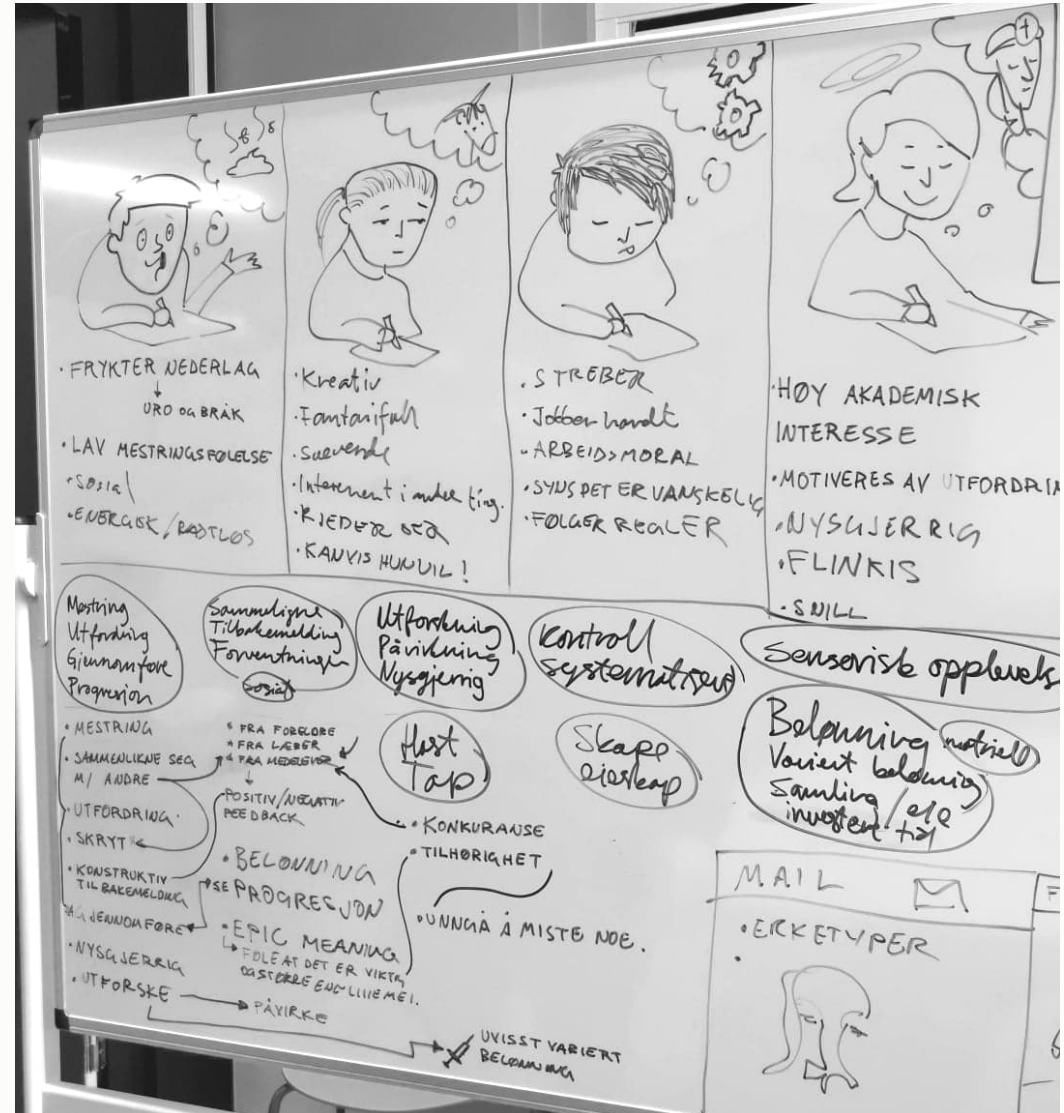 · FRYKTER NEDERLAG
URO OG BRÅK
· LAV MESTRINGSFØLELSE
· Sosial
· ENERGISK / RASTLØS
· Kreativ
· Fantasifull
· Svevende
· Interessert i andre ting.
· KJEDER SEG
· KAN VIS HUN VIL!
· STREBER
· Jobber hardt
· ARBEIDSMORAL
· SYNS DET ER VANSKELIG
· FØLGER REGLER
· HØY AKADEMISK
INTERESSE
· MOTIVERES AV UTFORDRIN
· NYSGJERRIG
· FLINKIS
· SNILL
Mestring
Utfordring
Gjennomføre
Progresjon
Sammenligne
Tilbakemelding
Forventninger
Sosialt
Utforskning
Påvirkning
Nysgjerrig
Kontroll
systematisere
Sensorisk opplevels
Høst
Tap
Skape
eierskap
Belønning
materiell
Variert belønning
Samling / eie
investere tid
· MESTRING
· SAMMENLIKNE SEG
M/ ANDRE
· UTFORDRING
· SKRYT
· KONSTRUKTIV
TILBAKEMELDING
GJENNOMFØRE
· NYSGJERRIG
· UTFORSKE
PÅVIRKE
* FRA FORELDRE
* FRA LÆRER
* FRA MEDELEVER
POSITIV/NEGATIV
FEEDBACK
· BELØNNING
· SE PROGRESJON
· EPIC MEANING
FØLE AT DET ER VIKTIG
OG STØRRE ENN LILLE MEG.
· KONKURANSE
· TILHØRIGHET
· UNNGÅ Å MISTE NOE.
UVISST VARIERT
BELØNNING
MAIL
· ERKETYPER
F